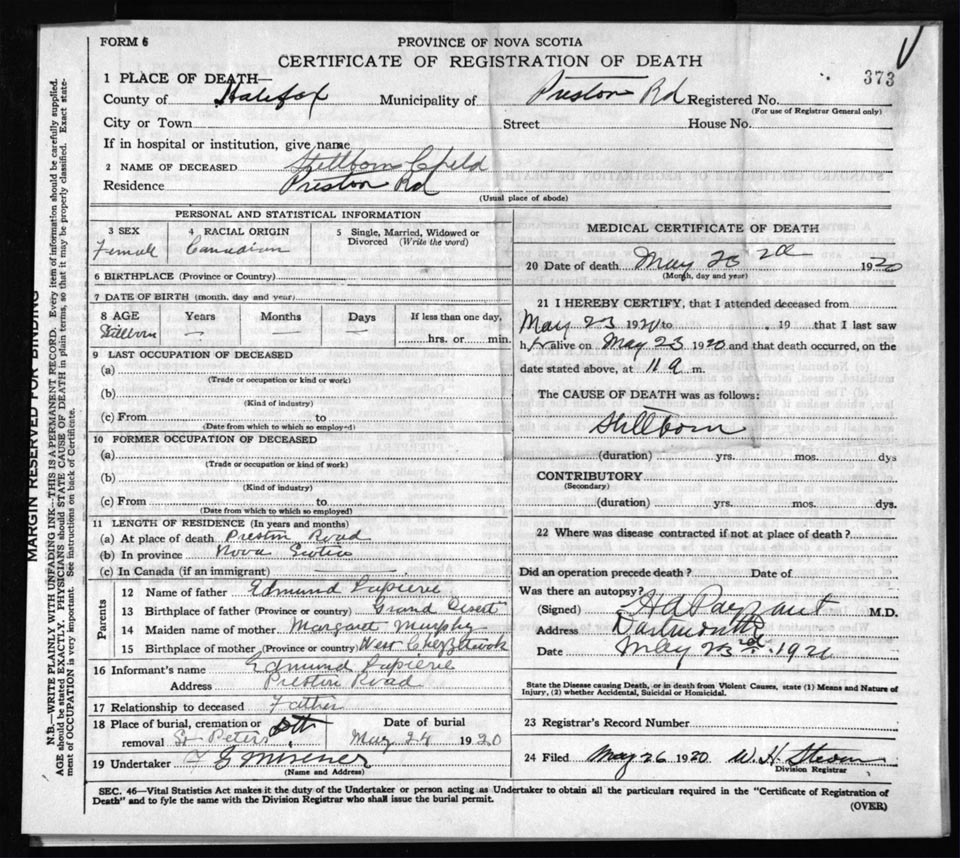 FORM 6
PROVINCE OF NOVA SCOTIA
CERTIFICATE OF REGISTRATION OF DEATH
373
1 PLACE OF DEATH—
County of Halifax Municipality of Preston Rd Registered No.
(For use of Registrar General only)
City or Town Street House No.
If in hospital or institution, give name
2 NAME OF DECEASED Stillborn Child
Residence Preston Rd
(Usual place of abode)
PERSONAL AND STATISTICAL INFORMATION
3 SEX 4 RACIAL ORIGIN 5 Single, Married, Widowed or
Divorced (Write the word)
Female Canadian
6 BIRTHPLACE (Province or Country)
7 DATE OF BIRTH (month, day and year)
8 AGE Years Months Days If less than one day,
Stillborn — — — hrs. or min.
9 LAST OCCUPATION OF DECEASED
(a)
(Trade or occupation or kind or work)
(b)
(Kind of industry)
(c) From to
(Date from which to which so employed)
10 FORMER OCCUPATION OF DECEASED
(a)
(Trade or occupation or kind of work)
(b)
(Kind of industry)
(c) From to
(Date from which to which so employed)
11 LENGTH OF RESIDENCE (In years and months)
(a) At place of death Preston Road
(b) In province Nova Scotia
(c) In Canada (if an immigrant)
Parents
12 Name of father Edmund Lapierre
13 Birthplace of father (Province or country) Grand Desert
14 Maiden name of mother Margaret Murphy
15 Birthplace of mother (Province or country) West Chezzetcook
16 Informant's name Edmund Lapierre
Address Preston Road
17 Relationship to deceased Father
18 Place of burial, cremation or Date of burial
removal St Peters May 24 1920
19 Undertaker Misener
(Name and Address)
MEDICAL CERTIFICATE OF DEATH
20 Date of death May 23 rd 1920
(Month, day and year)
21 I HEREBY CERTIFY, that I attended deceased from
May 23 1920 to 19 that I last saw
h er alive on May 23 1920 and that death occurred, on the
date stated above, at 11 a m.
The CAUSE OF DEATH was as follows:
Stillborn
(duration) yrs. mos. dys
CONTRIBUTORY
(Secondary)
(duration) yrs. mos. dys.
22 Where was disease contracted if not at place of death?
Did an operation precede death? Date of
Was there an autopsy?
(Signed) H A Payzant M.D.
Address Dartmouth
Date May 23rd 1920
State the Disease causing Death, or in death from Violent Causes, state (1) Means and Nature of
Injury, (2) whether Accidental, Suicidal or Homicidal.
23 Registrar's Record Number
24 Filed May 26 1920 W. H. Stevens
Division Registrar
SEC. 46—Vital Statistics Act makes it the duty of the Undertaker or person acting as Undertaker to obtain all the particulars required in the "Certificate of Registration of
Death" and to fyle the same with the Division Registrar who shall issue the burial permit.
(OVER)
MARGIN RESERVED FOR BINDING
N.B.—WRITE PLAINLY WITH UNFADING INK—THIS IS A PERMANENT RECORD. Every item of information should be carefully supplied.
AGE should be stated EXACTLY. PHYSICIANS should STATE CAUSE OF DEATH in plain terms, so that it may be properly classified. Exact state-
ment of OCCUPATION is very important. See instructions on back of Certificate.